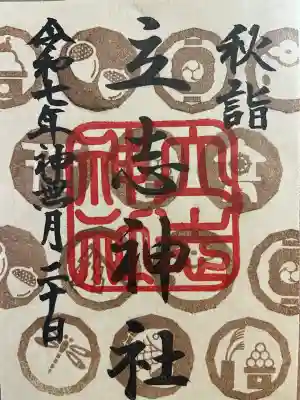 秋詣
立志神社
令和七年神無月二十日
立志
神社